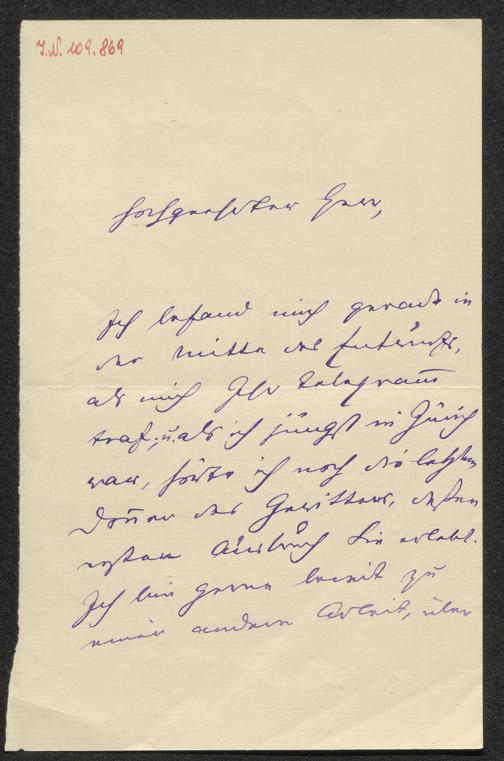 J.N. 109.869
Hochgeehrter Herr,
Ich befand mich gerade in
der Mitte des Entwurfs,
als mich Ihr Telegramm
traf; u. als ich jüngst in Zürich
war, hörte ich noch die letzten
Donner des Gewitters, dessen
ersten Ausbruch Sie erlebt.
Ich bin gerne bereit zu
einer andern Arbeit, über